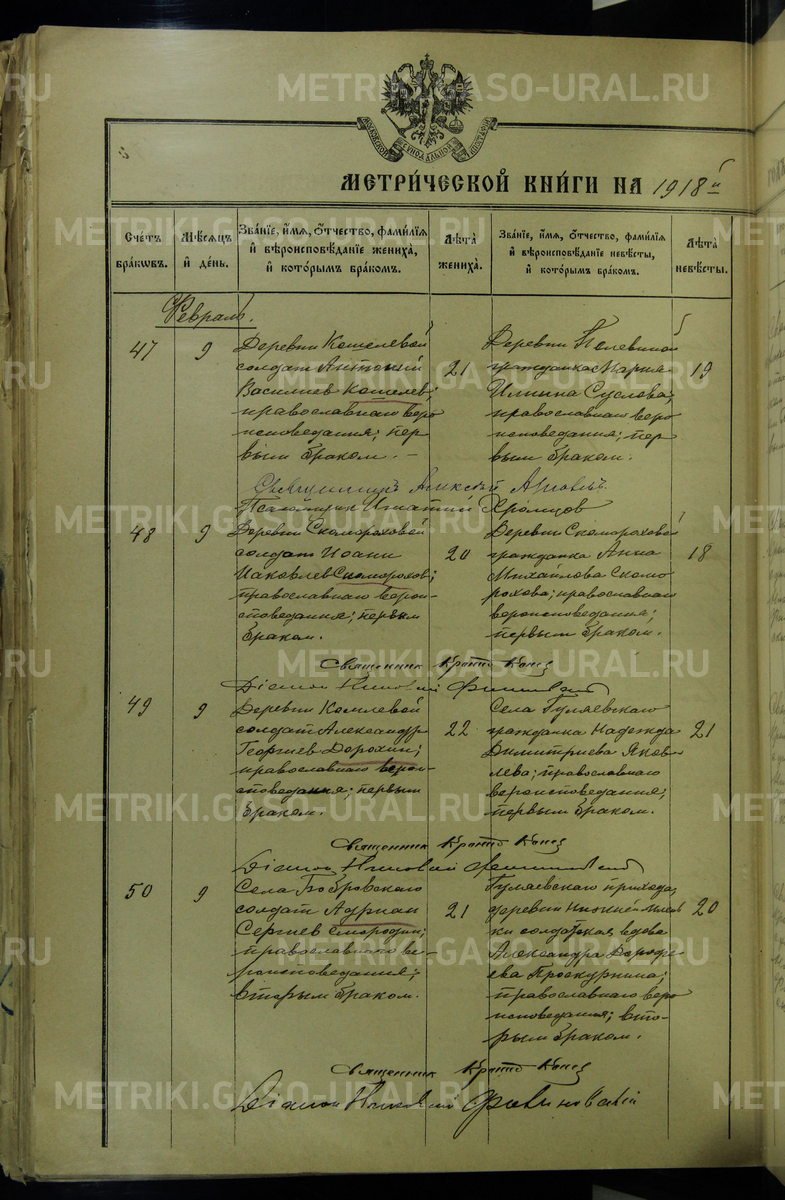 МЕТРИЧЕСКОЙ КНИГИ НА 1918 г.
Счетъ браковъ.
Мѣсяцъ и день.
Званіе, имя, отчество, фамилія и вѣроисповѣданіе жениха, и которымъ бракомъ.
Лѣта жениха.
Званіе, имя, отчество, фамилія и вѣроисповѣданіе невѣсты, и которымъ бракомъ.
Лѣта невѣсты.
Февраль.
47
9
Деревни Кошелевой
солдат Антоній
Василиев Кошелев;
православнаго веро
исповедания; пер
вым браком. –
21
Деревни
гражданка Мария
Илиина Суслова;
православнаго веро
исповедания; пер
вым браком.
19
Священник Алексей
Псаломщик Игнатий Хромцов
48
9
Деревни Скомороховой
солдат Иоанн
Иаковлев Скоморохов;
православнаго верои
споведания; первым
браком.
20
Деревни Скомороховой
гражданка Анна
Михайлова Скомо
рохова; православнаго
вероисповедания;
первым браком.
18
Священник
Діакон
49
9
Деревни
солдат Александр
Георгиев Дорохин;
православнаго верои
споведания; первым
браком.
22
Села Гуляевскаго
гражданка Надежда
Димитриева Яков
лева; православнаго
вероисповедания;
первым браком.
21
Священник
Діакон
50
9
Села Бобровскаго
солдат Адриан
Сергиев Смородин;
православнаго ве
роисповедания;
вторым браком.
21
Гуляевскаго прихода
деревни Нижней
солдатская вдова
Александра Дорофе
ева Проскурнина;
православнаго веро
исповедания; вто
рым браком.
20
Священник
Діакон
METRIKI.GASO-URAL.RU